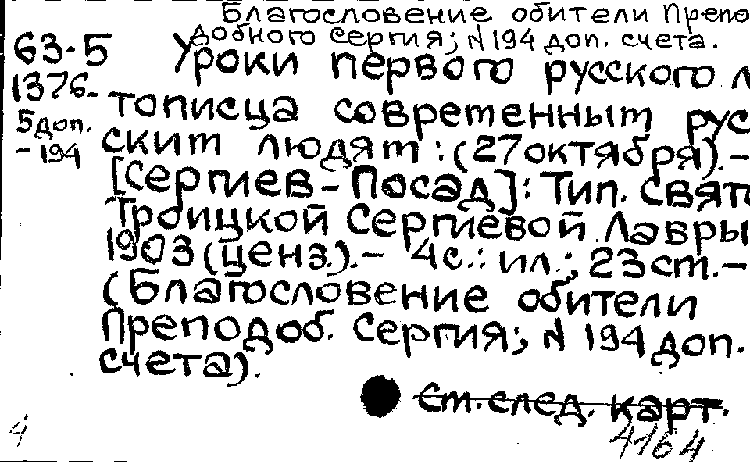 Благословение обители Препо
добного Сергия; N 194 доп. счета.
63-5 Уроки первого русского л
1376- тописца современным рус
5 доп. ским людям: (27 октября).-
-194 [Сергиев-Посад]: Тип. Свято
Троицкой Сергиевой Лавры
1903 (цена.).- 4с.: ил.; 23 ст.-
(Благословение обители
Преподоб. Сергия; N 194 доп.
счета).
См. след. карт.
4 4164